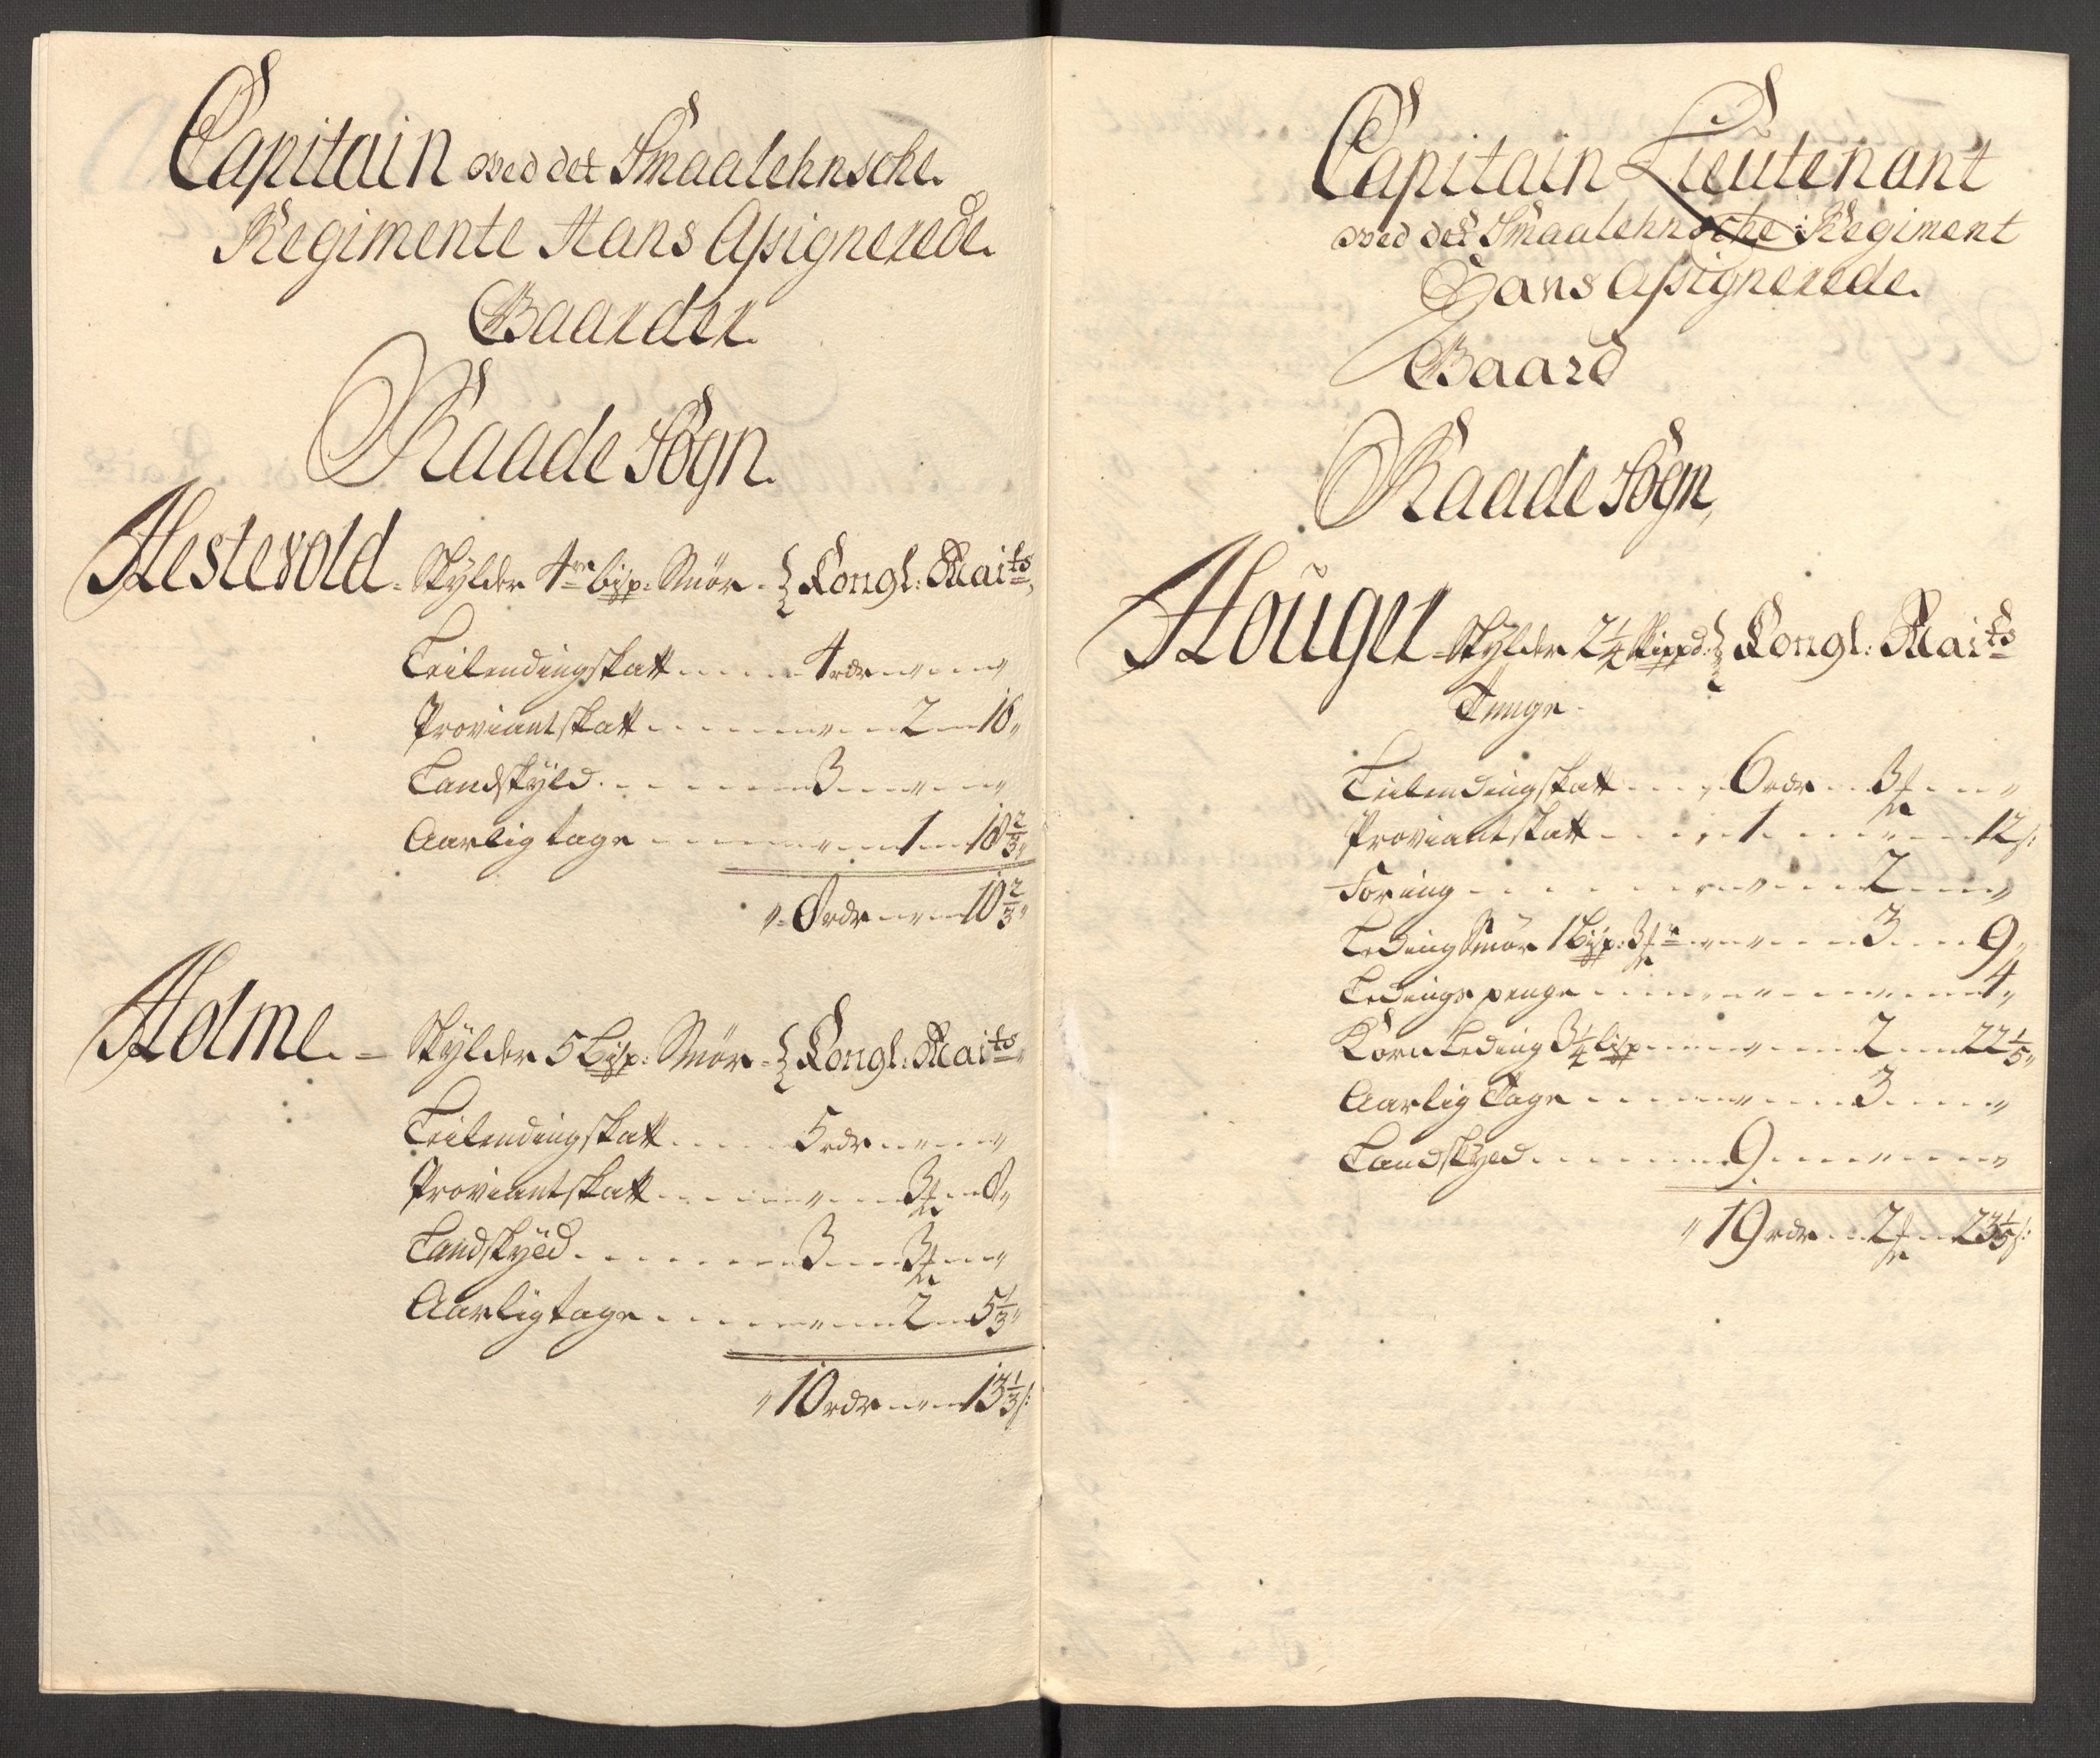 Capitain wed det Smaalehnsche
Regimente Hans Assignerede
Gaarder
Raade Sogn.
Hestevold. Skylder 4re bispd: Smör. { Kongl: Maits
Leilendingskatt 4 rdr " "
Proviantskatt " 2 16 "
Landskyld 3 " "
Aarlig tage " 1 18 2/3 "
" 8 rdr " 10 2/3 "
Holme. Skylder 5 Bispd: Smör { Kongl: Maits
Leilendingskatt 5 rdr " "
Proviantskatt " 3 ort 8 "
Landskyld 3 3 ort "
Aarlig tage " 2 5 1/3 "
" 10 rdr " 13 1/3 s:
Capitain Lieutenant
wed det Smaalehnsche Regiment
Hans Assignerede
Gaard
Raade Sogn,
Houger Skylder 2 1/4 Skippd: { Kongl: Maits
Tunge
Leilendingskatt 6 rdr 3 ort "
Proviantskatt 1 " 12 s:
Foring " 2 "
Leding Smör 1 Bispd: 3 " 3 9 "
Ledings penge " " 4 "
Korn Leding 3 1/4 bispd " 2 22 1/5 "
Aarlig Tage " 3 "
Landskyld 9 " "
" 19 rdr 2 ort 23 1/5 s: